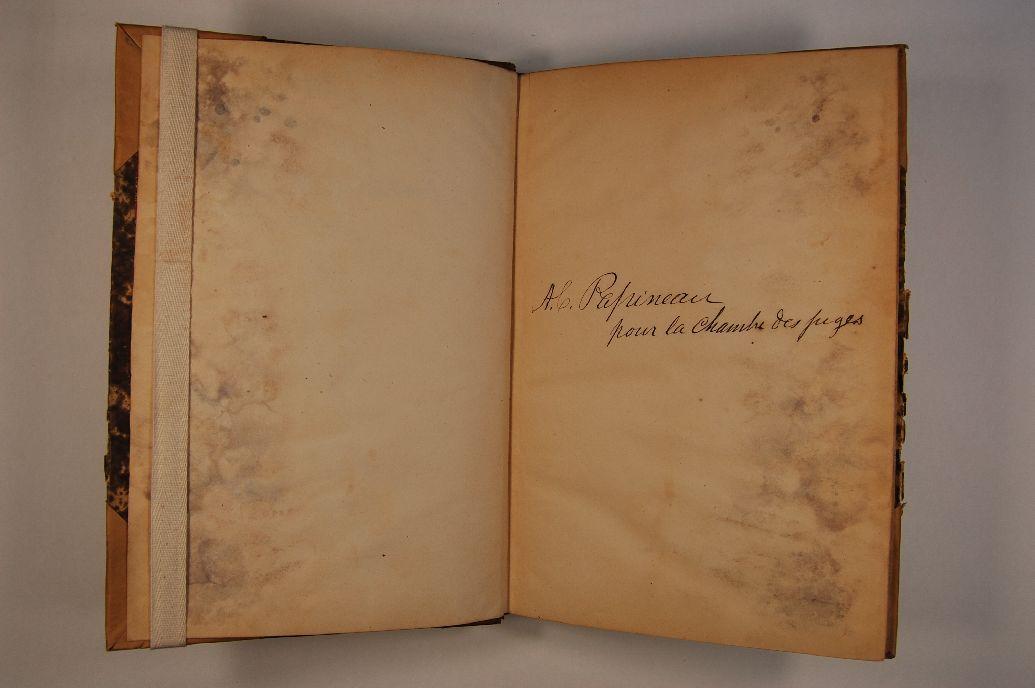 A. C. Papineau
pour la Chambre des juges